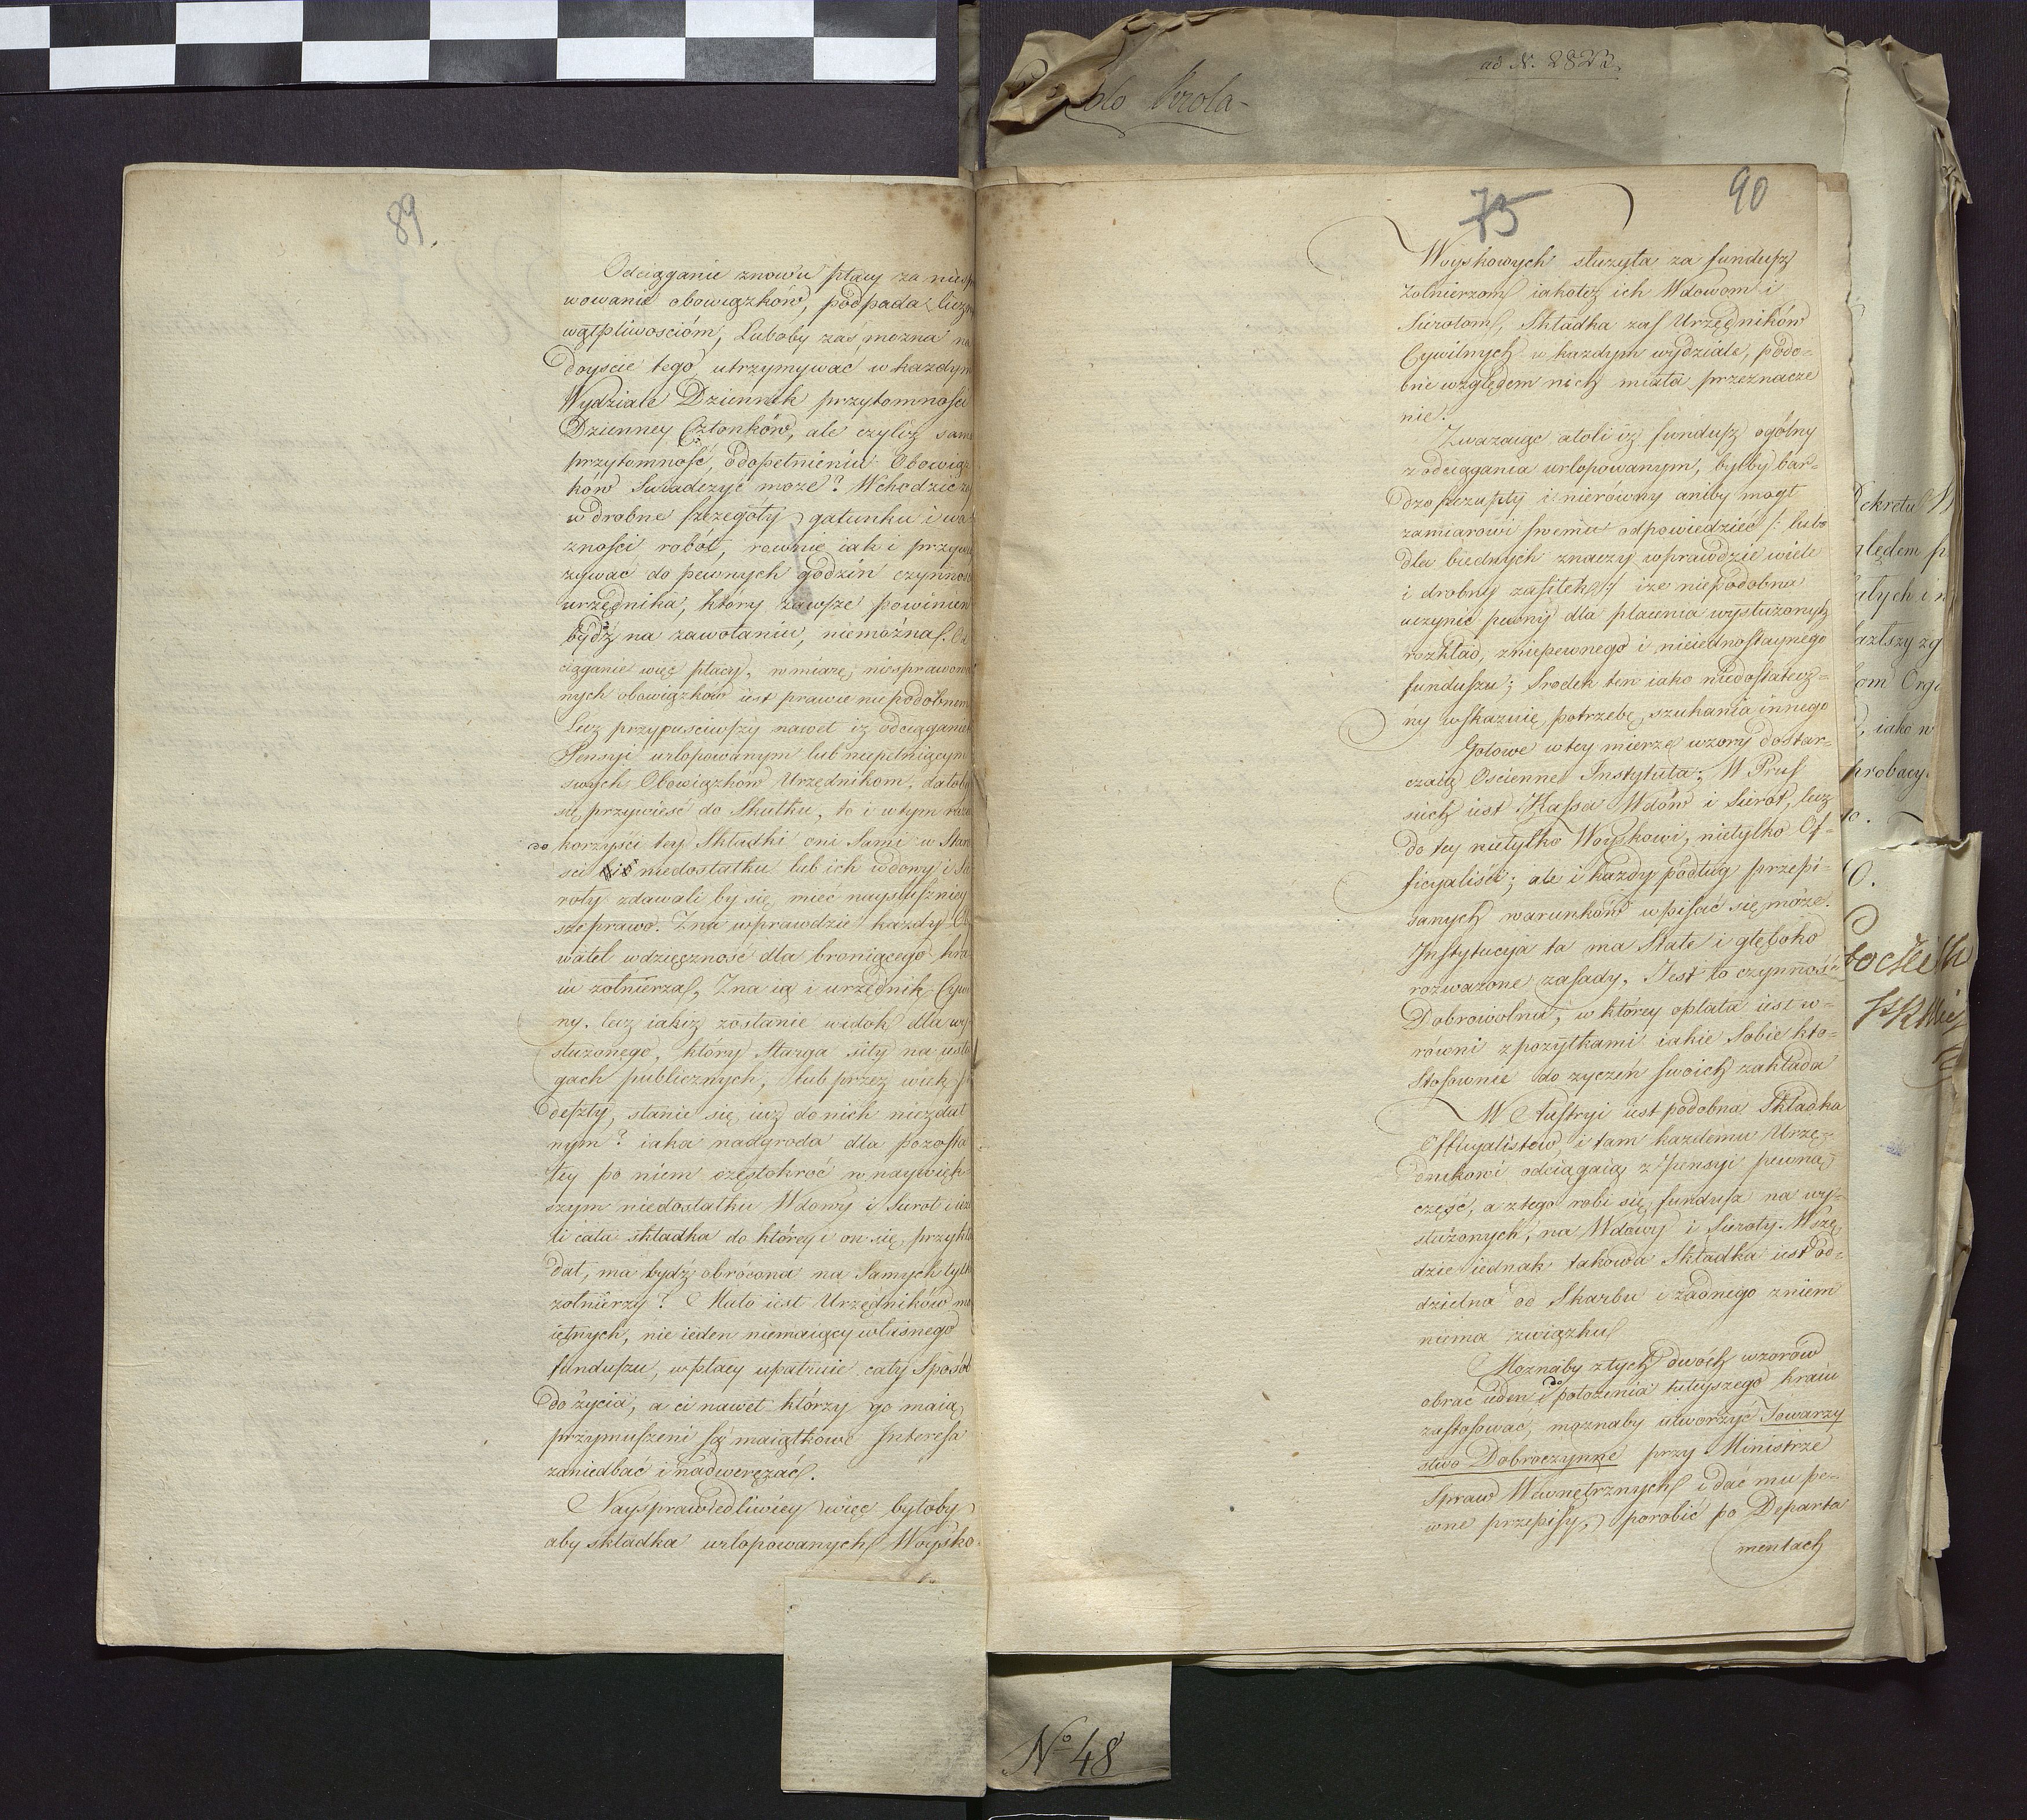 89.
Odciąganie znowu płacy za niespra
wowanie obowiązków, podpada liczn
wątpliwościóm, Luboby zaś można na
doyście tego utrzymywać w każdym
Wydziale Dziennik przytomności
Dzienney Członków, ale czyliż sama
przytomność, o dopełnieniu Obowiąz
ków Swiadczyć może? Wchodzić zaś
w drobne szczegóły gatunku i wa
żności robót, rownie iak i przywią
zywać do pewnych godzin czynność
urzędnika, który zawsze powinien
bydź na zawołaniu, niemożna. Od
ciąganie więc płacy, w miarę niesprawowa
nych obowiązków iest prawie niepodobnem
Lecz przypusciwszy nawet iż odciąganie
Pensyi urlopowanym lub niepełniącym
swych Obowiązków Urzędnikom, dałoby
się przywieść do Skutku, to i w tym razie
do korzyści tey Składki oni Sami w Staro
ści niedostatku lub ich wdowy i Sie
roty zdawali by się mieć naysłuszniey
sze prawo. Zna wprawdzie każdy Oby
watel wdzięczność dla broniącego kra
iu żołnierza, Zna ią i urzędnik Cywil
ny. lecz iakiż zostanie widok dla wy
służonego, który Starga siły na usłu
gach publicznych, lub przez wiek po
deszły, stanie się iuż do nich niezdat
nym? iaka nadgroda dla pozosta
łey po niem częstokroć w naywięk
szym niedostatku Wdowy i Sierot ieże
li cała składka do którey i on się przykła
dał, ma bydź obrócona na Samych tylko
żołnierzy? Mało iest Urzędników ma
iętnych, nie ieden niemaiący własnego
funduszu, w płacy upatruie cały Sposób
do życia, a ci nawet którzy go maią,
przymuszeni są maiątkowe Interesa
zaniedbać i nadwerężać.
Naysprawiedliwiey więc byłoby
aby składka urlopowanych Woysko
75
90
Woyskowych służyła za fundusz
żołnierzom iakoteż ich Wdowom i
Sierotom, Składka zaś Urzędników
Cywilnych w każdym wydziale, podo=
bne względem nich miała przeznacze
nie.
Zważaiąc atoli iż fundusz ogólny
z odciągania urlopowanym, byłby bar=
dzo szczupły i nierówny aniby mógł
zamiarowi swemu odpowiedzieć /: lubo
dla biednych znaczy wprawdzie wiele
i drobny zasiłek :/ iże niepodobna
uczynić pewny dla płacenia wysłużonych
rozkład, z niepewnego i nieiednostaynego
funduszu; Srodek ten iako niedostatecz=
ny wskazuię potrzebę szukania innego
Gotowe w tey mierze wzory dostar=
czaią Oscienne Instytuta; W Prus
siech iest Kassa Wdów i Sierot, lecz
do tey nietylko Woyskowi, nietylko Of=
ficyaliści; ale i każdy podług przepi=
sanych warunków wpisać się może.
Instytucyia ta ma Stałe i głęboko
rozważone zasady, Jest to czynność
Dobrowolna, w którey opłata iest w=
równi z pożytkami iakie Sobie kto=
Stosownie do życzeń swoich zakłada
W Austryi iest podobna Składka
Officyalistów, i tam każdemu Urzę=
dnikowi odciągaią z Pensyi pewną
część, a z tego robi się fundusz na wy=
służonych, na Wdowy i Sieroty. Wszę
dzie iednak takowa Składka iest od=
dzielna od Skarbu i żadnego z niem
niema związku
Możnaby z tych dwóch wzorów
obrać ieden i do położenia tuteyszego kraiu
zastosować, możnaby utworzyć Towarzy
stwo Dobroczynne przy Ministrze
Spraw Wewnętrznych i dać mu pe=
wne przepisy, porobić po Departa
mentach
ad N. 2823
Króla
Dekretu
ględem
om
iako w
probacy
No 48